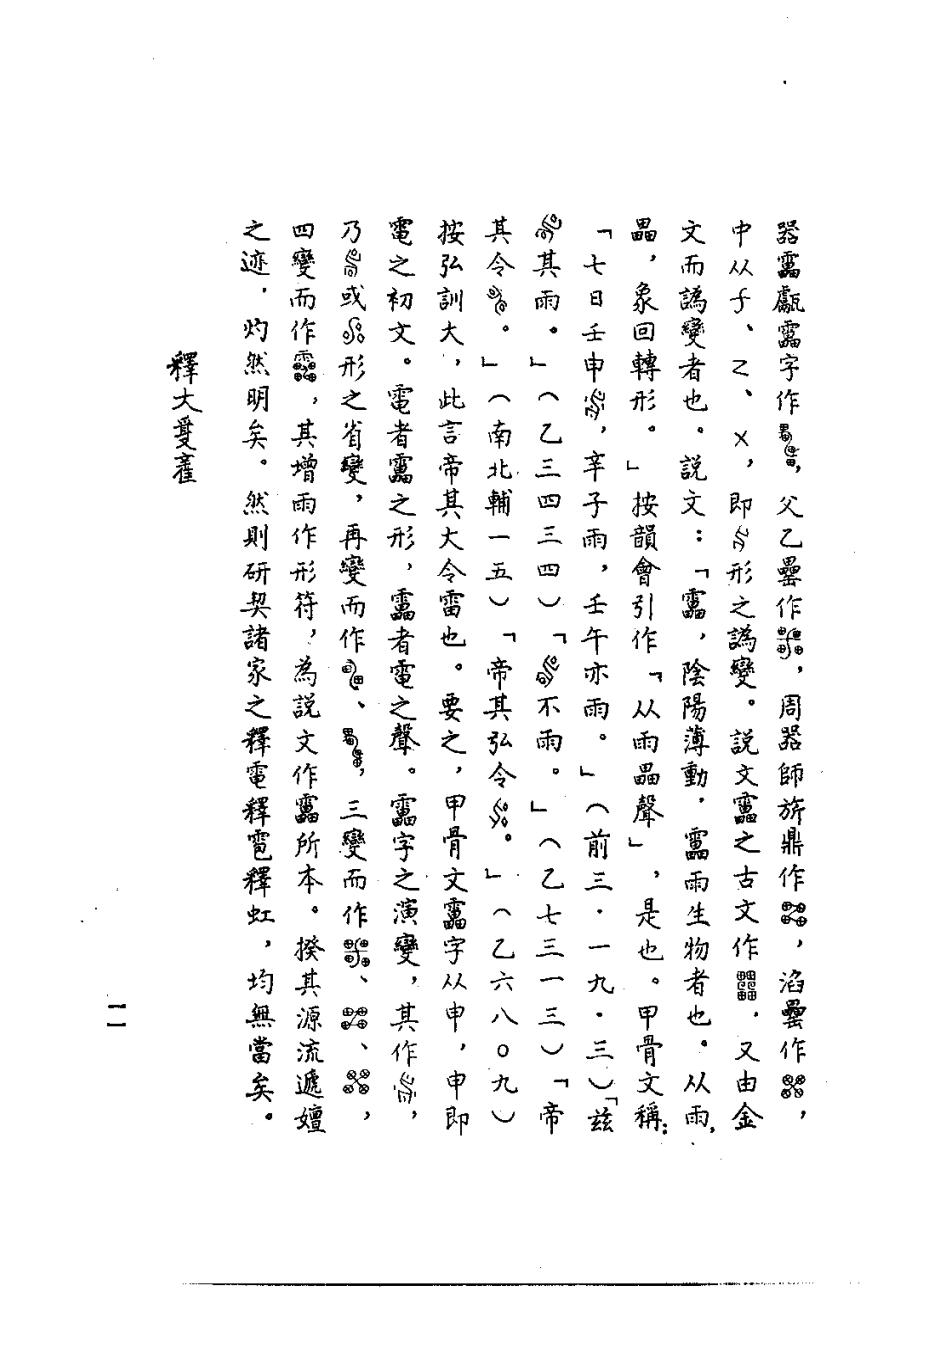 器靁甗靁字作，父乙罍作，周器師旂鼎作，㴽罍作，
中从、乙、乂，即形之譌變。說文靁之古文作，又由金
文而譌變者也。說文：「靁，陰陽薄動，靁雨生物者也。从雨，
畾，象回轉形。」按韻會引作「从雨畾聲」，是也。甲骨文稱：
「七日壬申，辛子雨，壬午亦雨。」（前三·一九·三）「茲
其雨。」（乙三四三四）「不雨。」（乙七三一三）「帝
其令。」（南北輔一五）「帝其弘令。」（乙六八〇九）
按弘訓大，此言帝其大令雷也。要之，甲骨文靁字从申，申即
電之初文。電者靁之形，靁者電之聲。靁字之演變，其作，
乃或形之省變，再變而作、，三變而作、、，
四變而作，其增雨作形符，為說文作靁所本。揆其源流遞嬗
之迹，灼然明矣。然則研契諸家之釋電釋雹釋虹，均無當矣。
釋大
一一